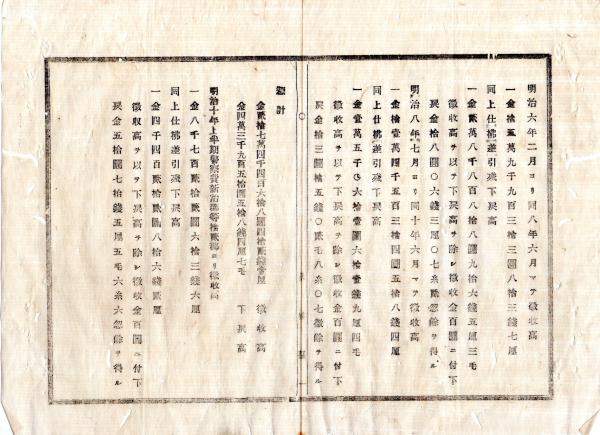 明治六年二月ヨリ同八年六月マテ徴収高
一金拾五萬九千九百三拾三圓八拾三錢七厘
同上仕拂差引殘下戻高
一金貳萬八千八百八拾八圓九拾六錢五厘三毛
徴收高ヲ以テ下戻高ヲ除シ徴收金百圓ニ付下
戻金拾八圓〇六錢三厘〇七糸貳忽餘ヲ得ル
明治八年七月ヨリ同十年六月マテ徴收高
一金拾壹萬四千五百三拾四圓五拾八錢四厘
同上仕拂差引殘下戻高
一金壹萬五千〇六拾壹圓六拾壹錢九厘四毛
徴收高ヲ以テ下戻高ヲ除シ徴收金百圓ニ付下
戻金拾三圓拾五錢〇貳毛八糸〇七微餘ヲ得ル
總計
金貳拾七萬四千四百六拾八圓四拾貳錢壹厘 徴收高
金四萬三千九百五拾圓五拾八錢四厘七毛 下戻高
明治十年上半期警察費新治濟等拾貳 ヨリ徴收高
一金八千七百貳拾貳圓六拾三錢六厘
同上仕拂差引殘下戻高
一金四千四百貳拾貳圓八拾六錢貳厘
徴收高ヲ以テ下戻高ヲ除シ徴收金百圓ニ付下
戻金五拾圓七拾錢五厘五毛六糸六忽餘ヲ得ル